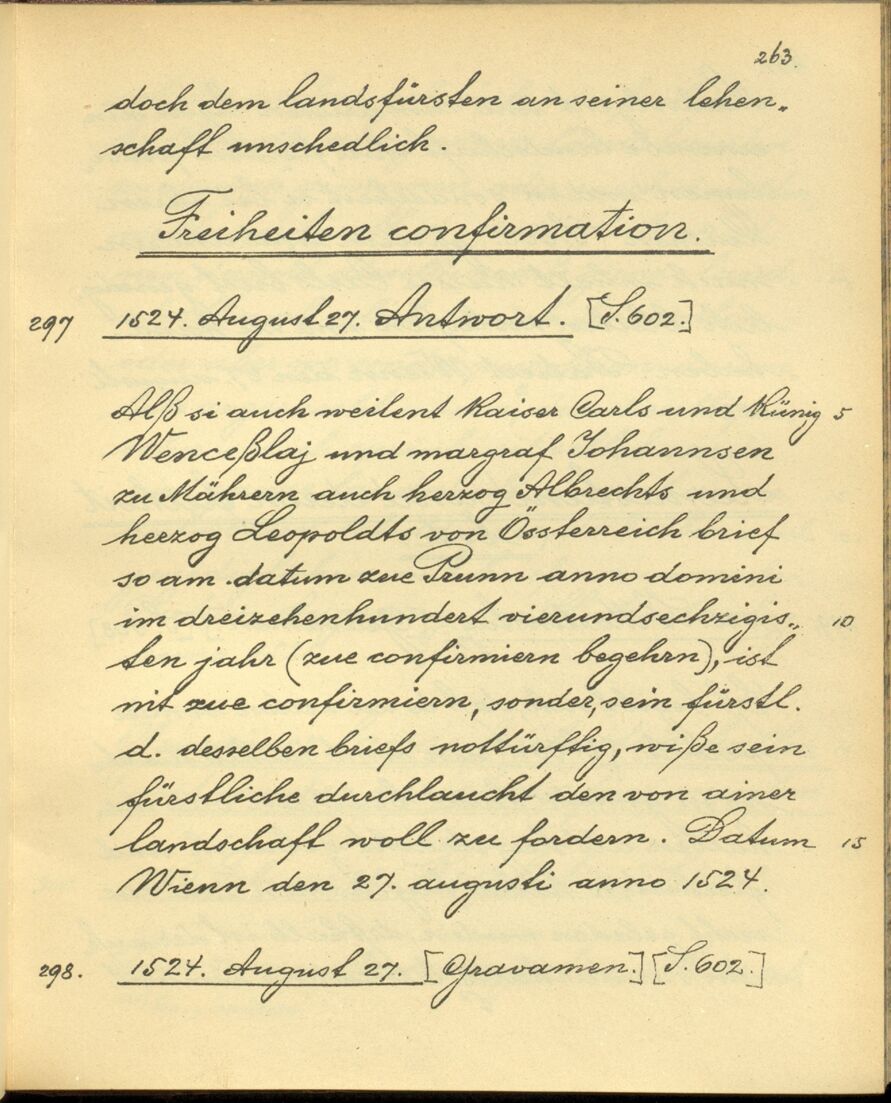 263.
doch dem landsfürsten an seiner lehen„
schaft unschedlich.
Freiheiten confirmation.
297 1524. August 27. Antwort. [S. 602.]
Alß si auch weilent Kaiser Carls und Künig 5
Wenceßlaj und margraf Johannsen
zu Mährern auch herzog Albrechts und
herzog Leopoldts von Össterreich brief
so am datum zue Prunn anno domini
im dreizehenhundert vierundsechzigis„ 10
ten jahr (zue confirmiern begehrn), ist
nit zue confirmiern, sonder, sein fürstl.
d. desselben briefs nottürftig, wiße sein
fürstliche durchlaucht den von ainer
landschaft woll zu fordern. Datum 15
Wienn den 27. augusti anno 1524.
298. 1524. August 27. [Gravamen.] [S. 602.]